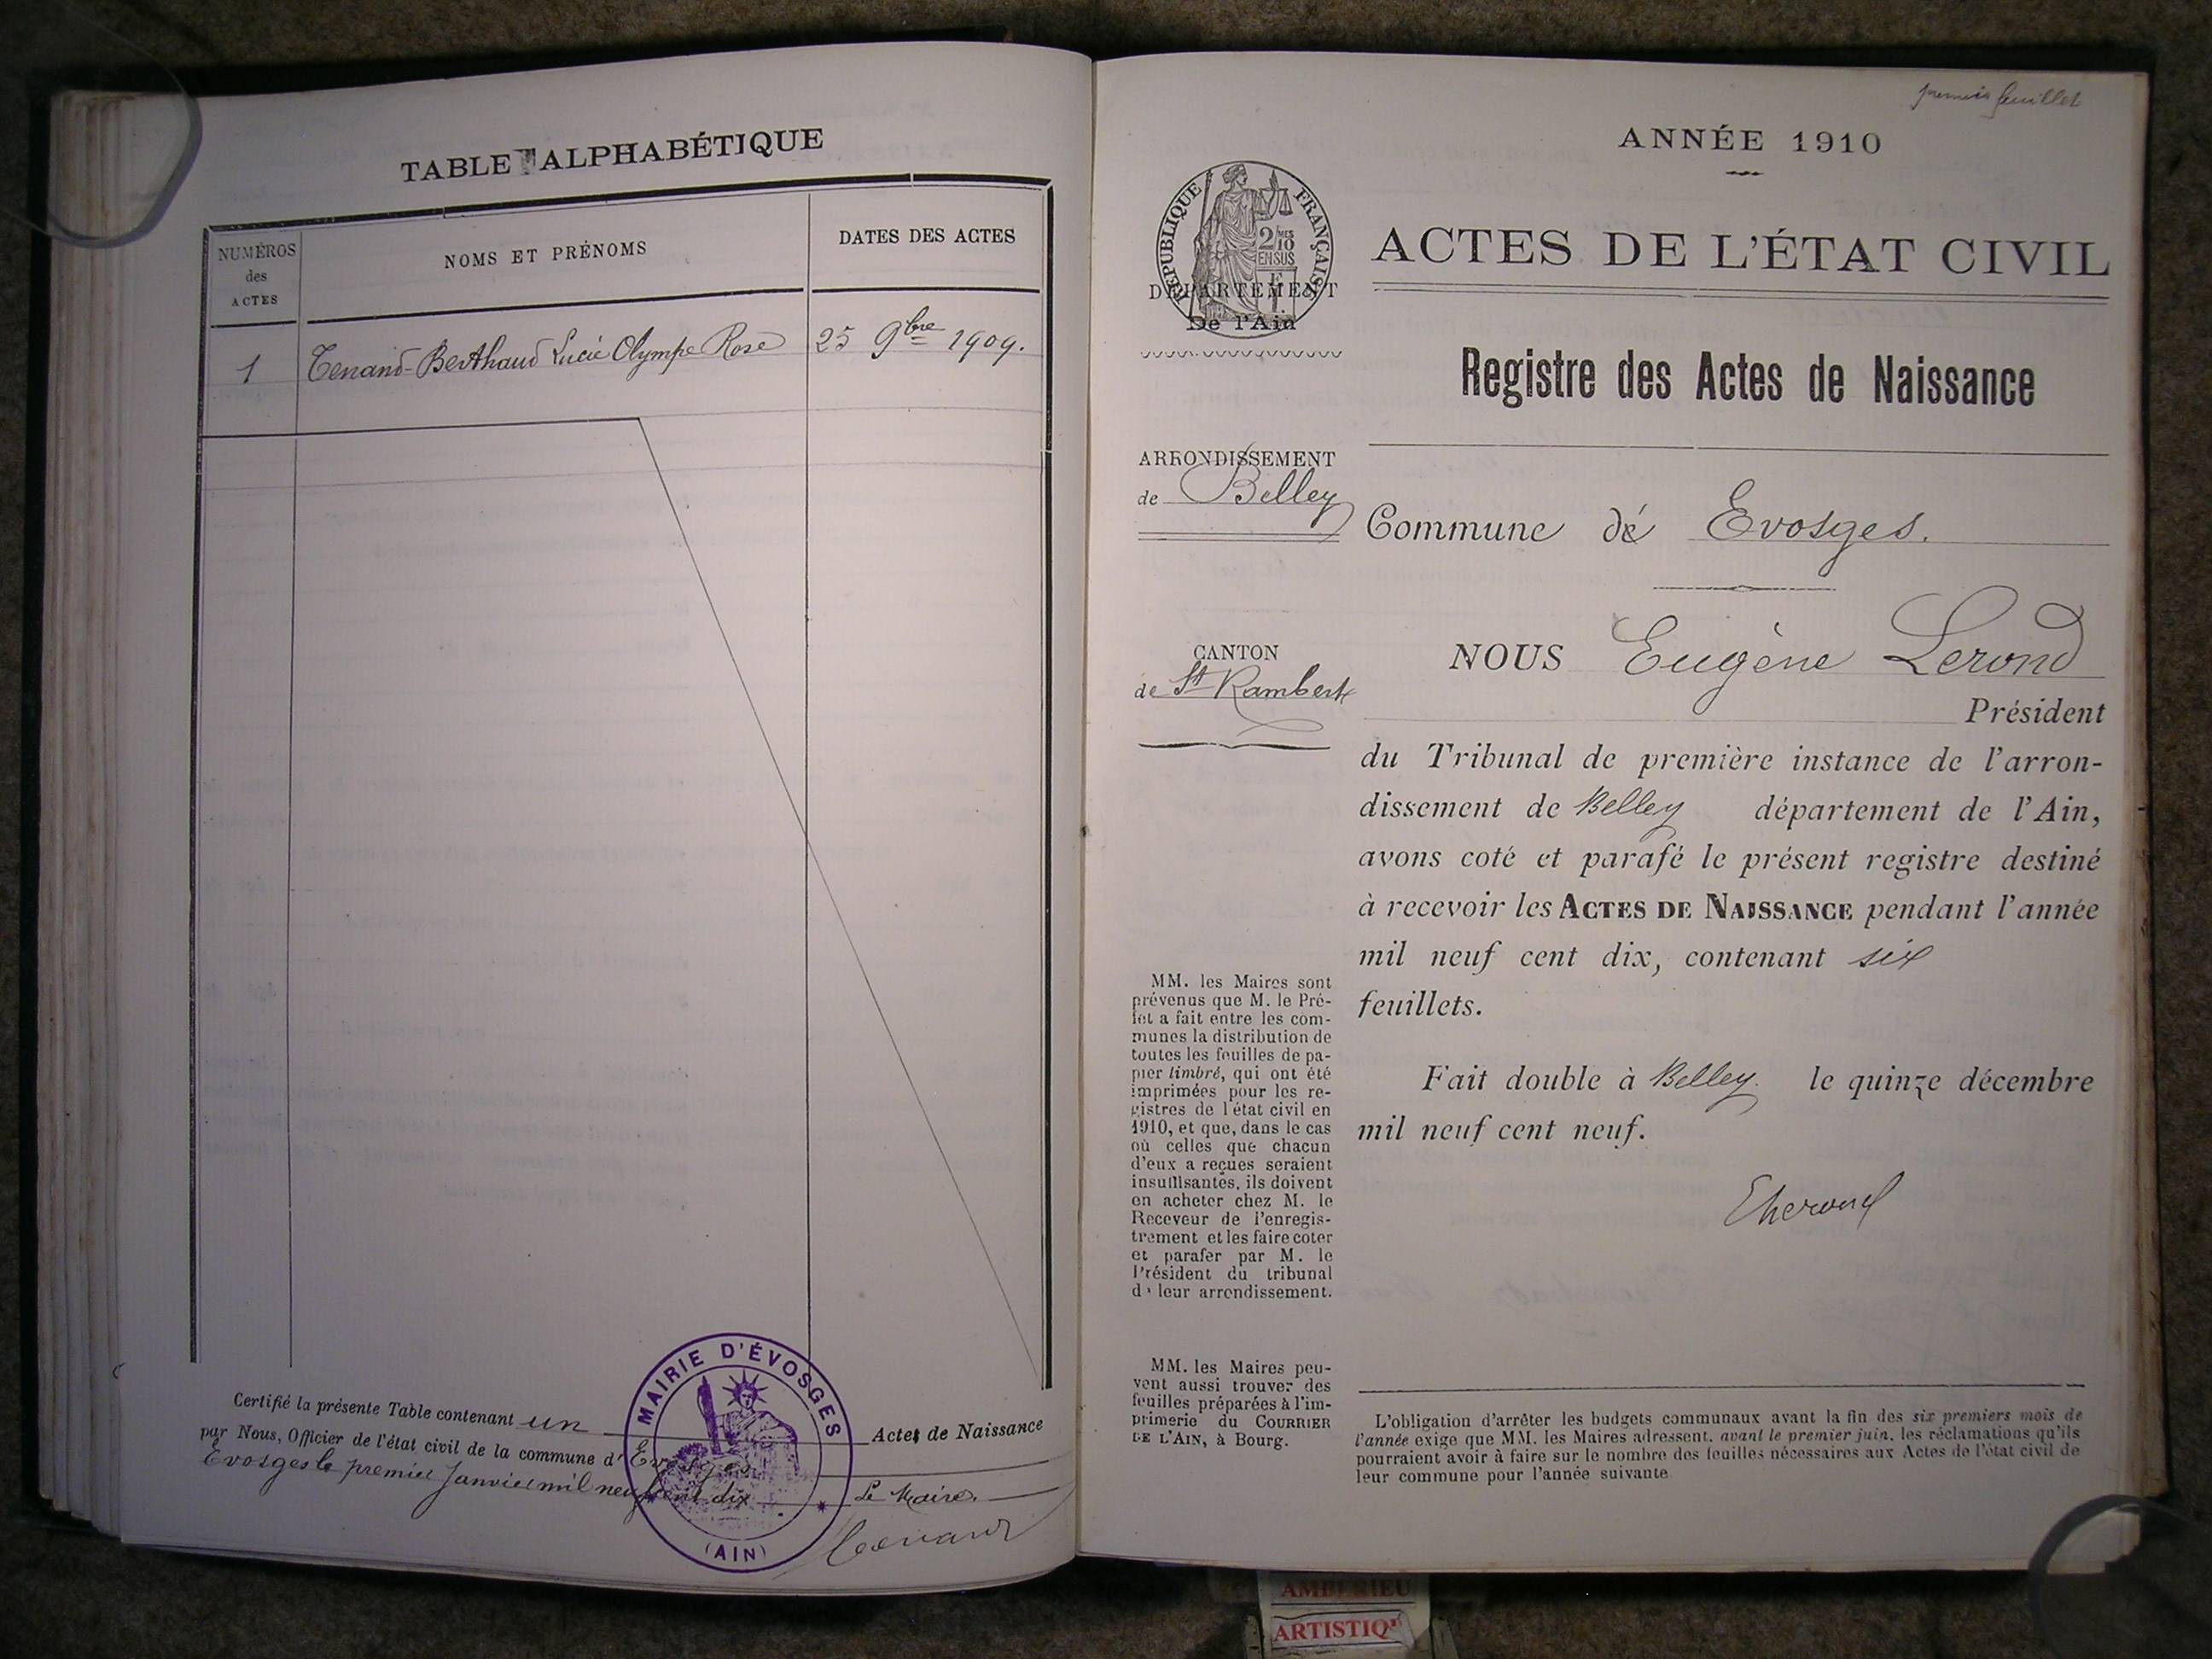 TABLE ALPHABÉTIQUE
NUMÉROS
des
ACTES
NOMS ET PRÉNOMS
DATES DES ACTES
1 Tenand-Berthaud Lucie Olympe Rose 25 9bre 1909.
Certifié la présente Table contenant un Actes de Naissance
par Nous, Officier de l'état civil de la commune d'Evosges
Evosges le premier Janvier mil neuf cent dix Le Maire.
Tenand
MAIRIE D'ÉVOSGES
(AIN)
premier feuillet
ANNÉE 1910
RÉPUBLIQUE FRANÇAISE
2/10 MES
EN SUS
DÉPARTEMENT
De l'Ain
ACTES DE L'ÉTAT CIVIL
Registre des Actes de Naissance
ARRONDISSEMENT
de Belley
Commune de Evosges.
CANTON
de St Rambert
NOUS Eugène Lerond
Président
du Tribunal de première instance de l'arron-
dissement de Belley département de l'Ain,
avons coté et parafé le présent registre destiné
à recevoir les ACTES DE NAISSANCE pendant l'année
mil neuf cent dix, contenant six
feuillets.
Fait double à Belley le quinze décembre
mil neuf cent neuf.
MM. les Maires sont
prévenus que M. le Pré-
fet a fait entre les com-
munes la distribution de
toutes les feuilles de pa-
pier timbré, qui ont été
imprimées pour les re-
gistres de l'état civil en
1910, et que, dans le cas
où celles que chacun
d'eux a reçues seraient
insuffisantes, ils doivent
en acheter chez M. le
Receveur de l'enregis-
trement et les faire coter
et parafer par M. le
Président du tribunal
de leur arrondissement.
MM. les Maires peu-
vent aussi trouver des
feuilles préparées à l'im-
primerie du COURRIER
DE L'AIN, à Bourg.
L'obligation d'arrêter les budgets communaux avant la fin des six premiers mois de
l'année exige que MM. les Maires adressent, avant le premier juin, les réclamations qu'ils
pourraient avoir à faire sur le nombre des feuilles nécessaires aux Actes de l'état civil de
leur commune pour l'année suivante
AMBERIEU
ARTISTIQ